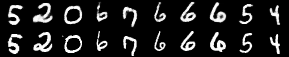 5 2 0 6 7 6 6 6 5 4
5 2 0 6 7 6 6 6 5 4